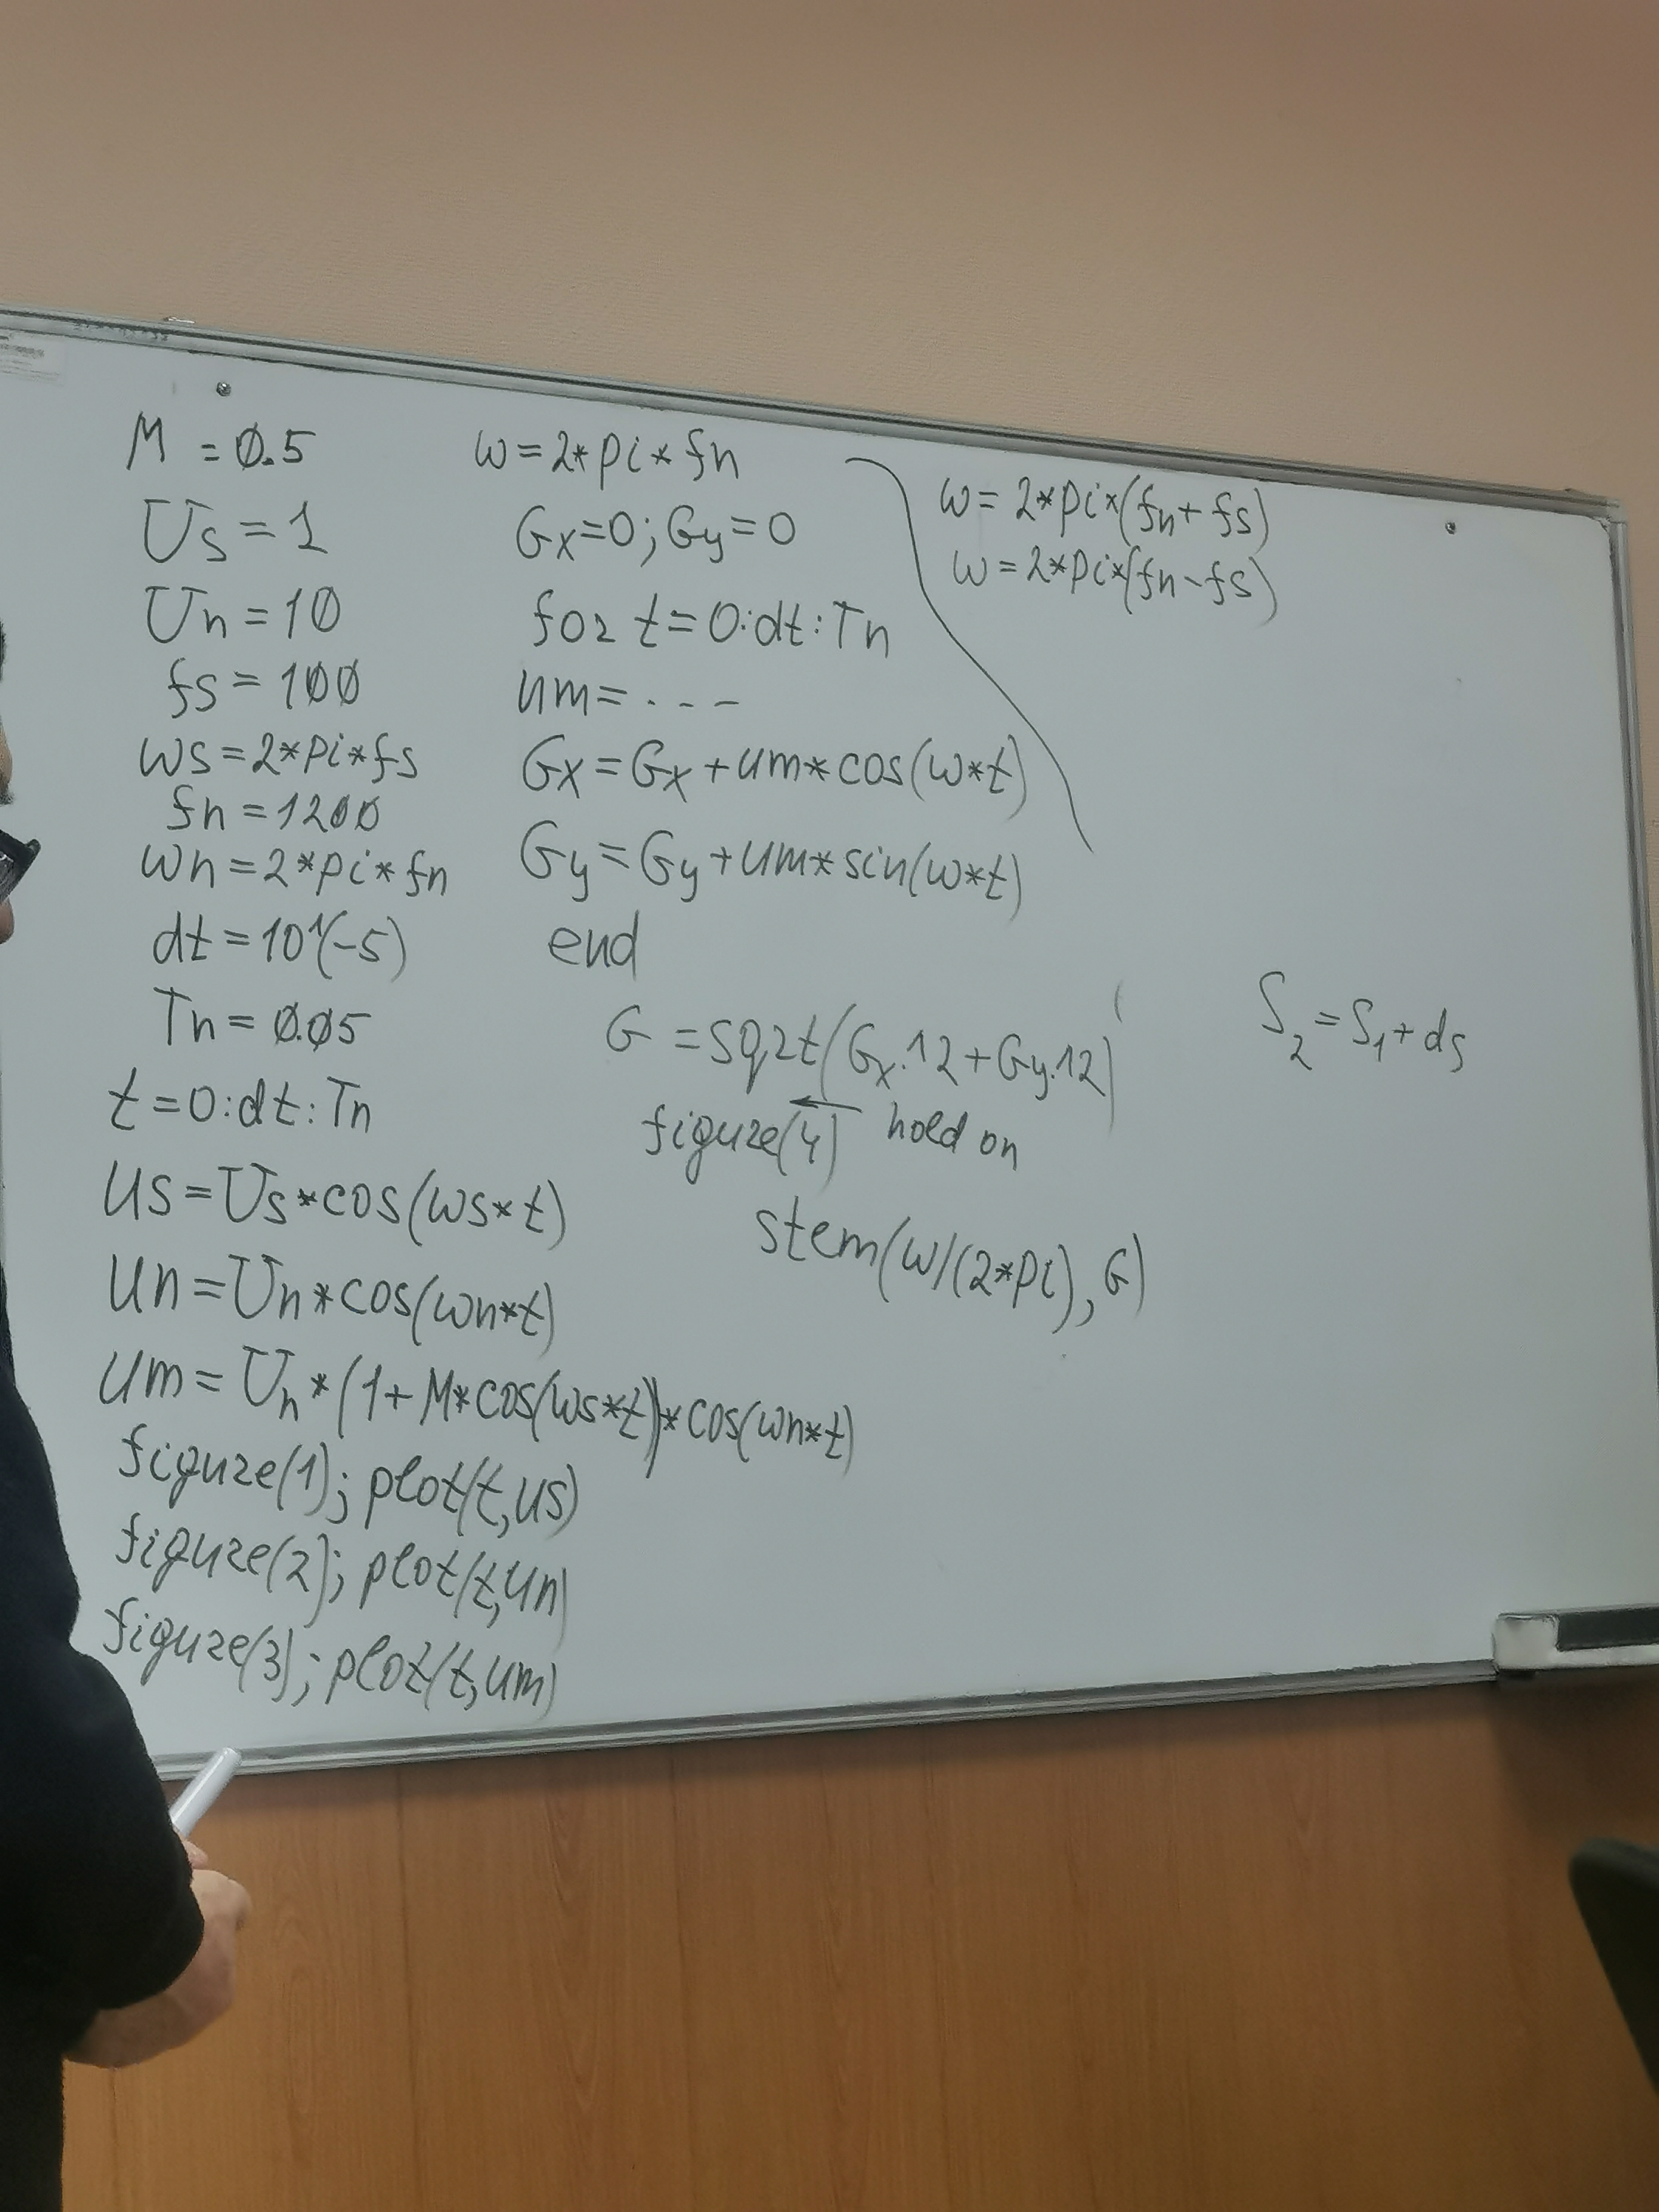 M = 0.5
Us = 1
Un = 10
fs = 100
ws = 2*pi*fs
fn = 1200
wn = 2*pi*fn
dt = 10^(-5)
Tn = 0.05
t = 0:dt:Tn
us = Us*cos(ws*t)
un = Un*cos(wn*t)
um = Un*(1+M*cos(ws*t))*cos(wn*t)
figure(1); plot(t,us)
figure(2); plot(t,un)
figure(3); plot(t,um)
w = 2*pi*fn
Gx=0; Gy=0
for t=0:dt:Tn
um= . - - -
Gx = Gx + um*cos(w*t)
Gy = Gy + um*sin(w*t)
end
G = sqrt(Gx.^2+Gy.^2)
figure(4) ← hold on
stem(w/(2*pi), G)
w = 2*pi*(fn+fs)
w = 2*pi*(fn-fs)
S2 = S1 + ds